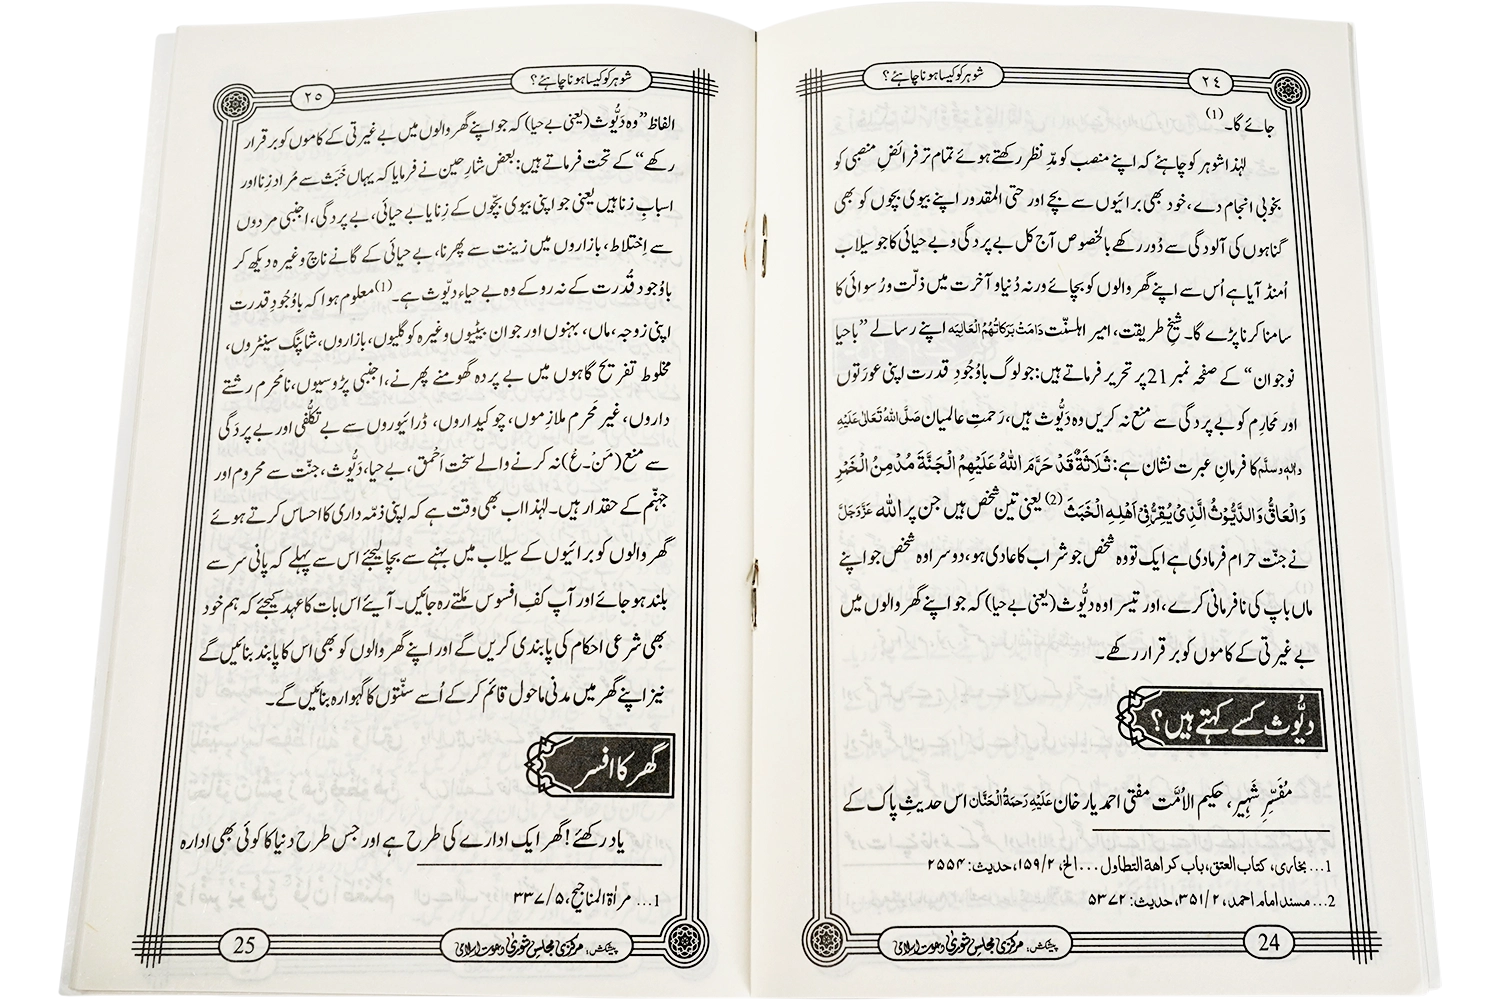 شوہر کو کیسا ہونا چاہئے؟
٢٤
جائے گا۔(1)
لہٰذا شوہر کو چاہئے کہ اپنے منصب کو مدِّ نظر رکھتے ہوئے تمام تر فرائضِ منصبی کو
بخوبی انجام دے، خود بھی برائیوں سے بچے اور حتی المقدور اپنے بیوی بچوں کو بھی
گناہوں کی آلودگی سے دُور رکھے بالخصوص آج کل بے پردگی و بے حیائی کا جو سیلاب
اُمنڈ آیا ہے اُس سے اپنے گھر والوں کو بچائے ورنہ دُنیا و آخرت میں ذلّت و رُسوائی کا
سامنا کرنا پڑے گا۔ شیخِ طریقت، امیرِ اہلسنّت دَامَتْ بَرَکَاتُہُمُ الْعَالِیَہ اپنے رسالے ”باحیا
نوجوان“ کے صفحہ نمبر 21 پر تحریر فرماتے ہیں: جو لوگ باوُجُودِ قدرت اپنی عورَتوں
اور مَحارِم کو بے پردگی سے منع نہ کریں وہ دَیُّوث ہیں، رَحمتِ عالمیان صَلَّی اللہُ تَعَالٰی عَلَیْہِ
واٰلہٖ وسلَّم کا فرمانِ عبرت نشان ہے: ثَلَاثَةٌ قَدْ حَرَّمَ اللهُ عَلَيْهِمُ الْجَنَّةَ مُدْمِنُ الْخَمْرِ
وَالْعَاقُّ وَالدَّيُّوْثُ الَّذِىْ يُقِرُّ فِىْ اَهْلِهِ الْخَبَثَ(2) یعنی تین شخص ہیں جن پر اللہ عَزَّوَجَلَّ
نے جنّت حرام فرما دی ہے ایک تو وہ شخص جو شراب کا عادی ہو، دوسرا وہ شخص جو اپنے
ماں باپ کی نافرمانی کرے، اور تیسرا وہ دیُّوث (یعنی بے حیا) کہ جو اپنے گھر والوں میں
بے غیرتی کے کاموں کو برقرار رکھے۔
دیُّوث کسے کہتے ہیں؟
مُفَسِّرِ شَہِیر، حکیم الاُمَّت مفتی احمد یار خان عَلَیْہِ رَحمَۃُ الْحَنَّان اس حدیثِ پاک کے
1... بخاری، کتاب العتق، باب کراھة التطاول ...الخ، ٢/١٥٩، حدیث: ٢٥٥٤
2... مسند امام احمد، ٢/٣٥١، حدیث: ٥٣٧٢
پیشکش: مرکزی مجلسِ شوریٰ دعوتِ اسلامی
24
شوہر کو کیسا ہونا چاہئے؟
٢٥
الفاظ ”وہ دَیُّوث (یعنی بے حیا) کہ جو اپنے گھر والوں میں بے غیرتی کے کاموں کو برقرار
رکھے“ کے تحت فرماتے ہیں: بعض شارِحین نے فرمایا کہ یہاں خَبَث سے مُراد زِنا اور
اسبابِ زنا ہیں یعنی جو اپنی بیوی بچّوں کے زِنا یا بے حیائی، بے پردگی، اجنبی مردوں
سے اِختلاط، بازاروں میں زینت سے پھرنا، بے حیائی کے گانے ناچ وغیرہ دیکھ کر
باوُجود قُدرت کے نہ روکے وہ بے حیاء دیّوث ہے۔(1) معلوم ہوا کہ باوُجُودِ قدرت
اپنی زوجہ، ماں، بہنوں اور جوان بیٹیوں وغیرہ کو گلیوں، بازاروں، شاپنگ سینٹروں،
مخلوط تفریح گاہوں میں بے پردہ گھومنے پھرنے، اجنبی پڑوسیوں، نامَحرم رشتے
داروں، غیر مَحرم ملازِموں، چوکیداروں، ڈرائیوروں سے بے تکلُّفی اور بے پردَگی
سے منع (مَنْ۔عْ) نہ کرنے والے سخت اَحْمق، بے حیا، دَیُّوث، جنّت سے محروم اور
جہنّم کے حقدار ہیں۔ لہٰذا اب بھی وقت ہے کہ اپنی ذمّہ داری کا احساس کرتے ہوئے
گھر والوں کو برائیوں کے سیلاب میں بہنے سے بچا لیجئے اس سے پہلے کہ پانی سر سے
بلند ہو جائے اور آپ کفِ افسوس مَلتے رہ جائیں۔ آیئے اس بات کا عہد کیجئے کہ ہم خود
بھی شرعی احکام کی پابندی کریں گے اور اپنے گھر والوں کو بھی اس کا پابند بنائیں گے
نیز اپنے گھر میں مدنی ماحول قائم کر کے اُسے سنّتوں کا گہوارہ بنائیں گے۔
گھر کا افسر
یاد رکھئے! گھر ایک ادارے کی طرح ہے اور جس طرح دنیا کا کوئی بھی ادارہ
1... مراٰة المناجیح، ٥/٣٣٧
پیشکش: مرکزی مجلسِ شوریٰ دعوتِ اسلامی
25